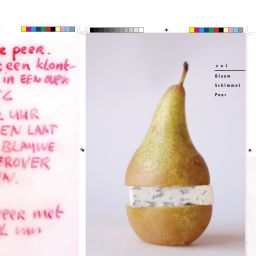 e peer.
t een klont-
in EEN OVEN
L UUR
EN LAAT
BLAUWE
EROVER
EN.
eer met
van
nol
Blauw
Schimmel
Peer